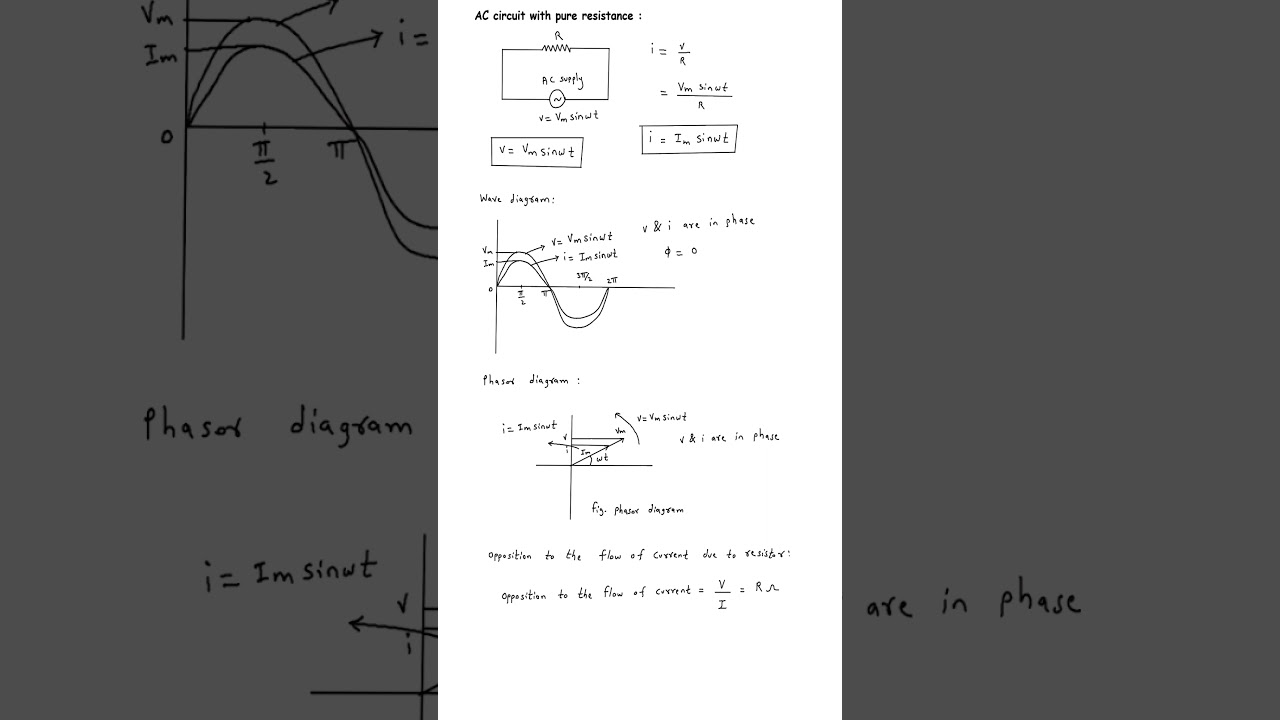 AC circuit with pure resistance :
R
AC supply
~
v = Vm sinωt
v = Vm sinωt
i = v/R
= Vm sinωt / R
i = Im sinωt
Wave diagram:
v & i are in phase
ϕ = 0
Vm
v = Vm sinωt
Im
i = Im sinωt
0
π/2
π
3π/2
2π
Phasor diagram :
i = Im sinωt
v = Vm sinωt
v
Vm
i
Im
ωt
v & i are in phase
fig. phasor diagram
opposition to the flow of current due to resistor:
opposition to the flow of current = V/I = R Ω
Vm
Im
i =
0
π/2
π
Phasor diagram
i = Im sinωt
v
i
are in phase